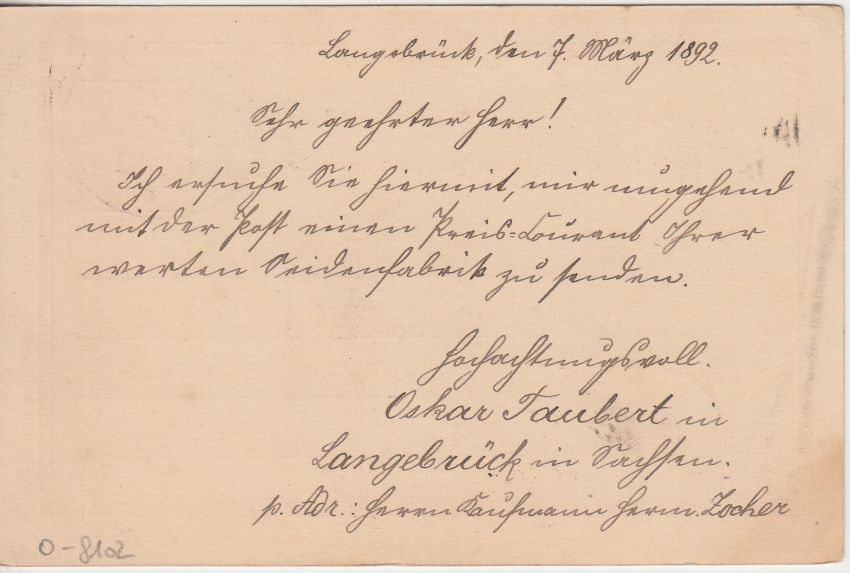 Langebrück, den 7. März 1892.
Sehr geehrter Herr!
Ich ersuche Sie hiermit, mir umgehend
mit der Post einen Preis=Courant Ihrer
werten Seidenfabrik zu senden.
Hochachtungsvoll.
Oskar Taubert in
Langebrück in Sachsen.
p. Adr.: Herrn Kaufmann Herm. Zocher
O-8102